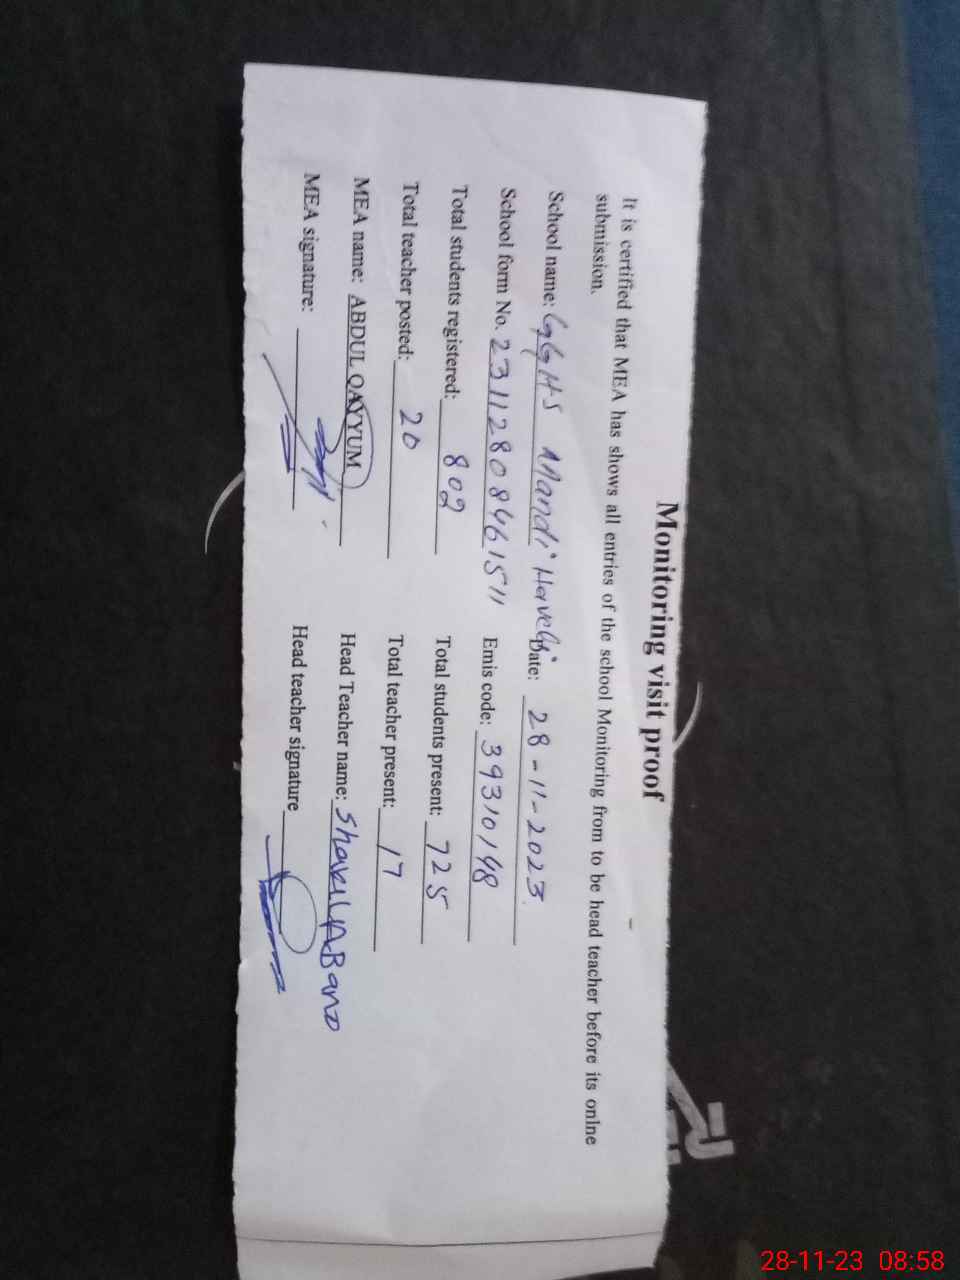 Monitoring visit proof
It is certified that MEA has shows all entries of the school Monitoring from to be head teacher before its onlne
submission.
School name: GGHS Mandi Haveli Date: 28-11-2023.
School form No. 23112808461511 Emis code: 39310148
Total students registered: 802 Total students present: 725
Total teacher posted: 20 Total teacher present: 17
MEA name: ABDUL QAYYUM Head Teacher name: ShakilA Bano
MEA signature: Head teacher signature
28-11-23 08:58